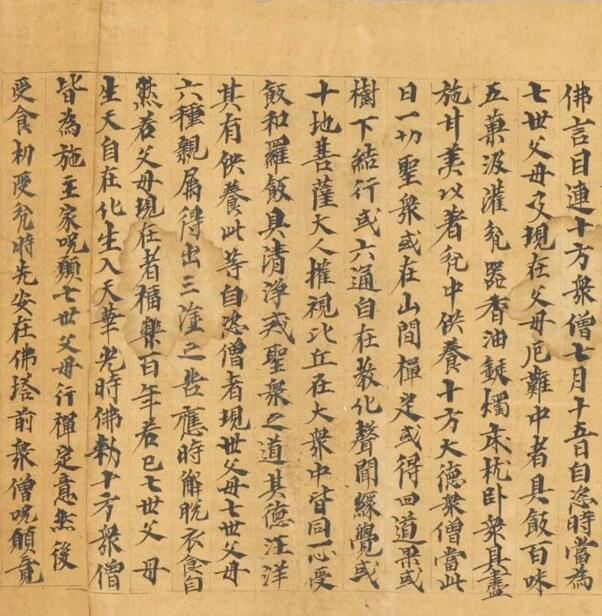 佛言目連十方衆僧七月十五日自恣時當爲
七世父母及現在父母厄難中者具飯百味
五菓汲灌瓫器香油鋌燭床枕卧衆具盡
施甘美以著瓫中供養十方大德衆僧當此
日一切聖衆或在山間禪定或得四道果或
樹下結行或六通自在教化聲聞緣覺或
十地菩薩大人權視比丘在大衆中皆同一心受
飯和羅飯具清淨戒聖衆之道其德汪洋
其有供養此等自恣僧者現世父母七世父母
六種親屬得出三塗之苦應時解脫衣食自
然若父母現在者福樂百年若已七世父母
生天自在化生入天華光時佛勑十方衆僧
皆為施主家呪願七世父母行禪定意然後
受食初受瓫時先安在佛塔前衆僧呪願竟